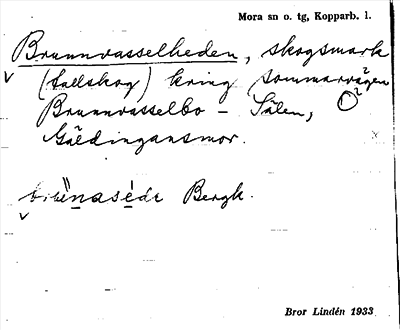 Mora sn o. tg, Kopparb. l.
Brunnvasselheden, skogsmark
(tallskog) kring sommarvägen
Brunnvasselbo - Sälen,
O²
Gäldingansmor.
Bergk.
Bror Lindén 1933